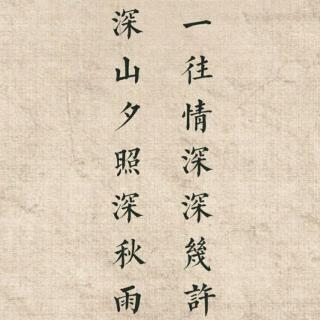 一往情深深幾許
深山夕照深秋雨